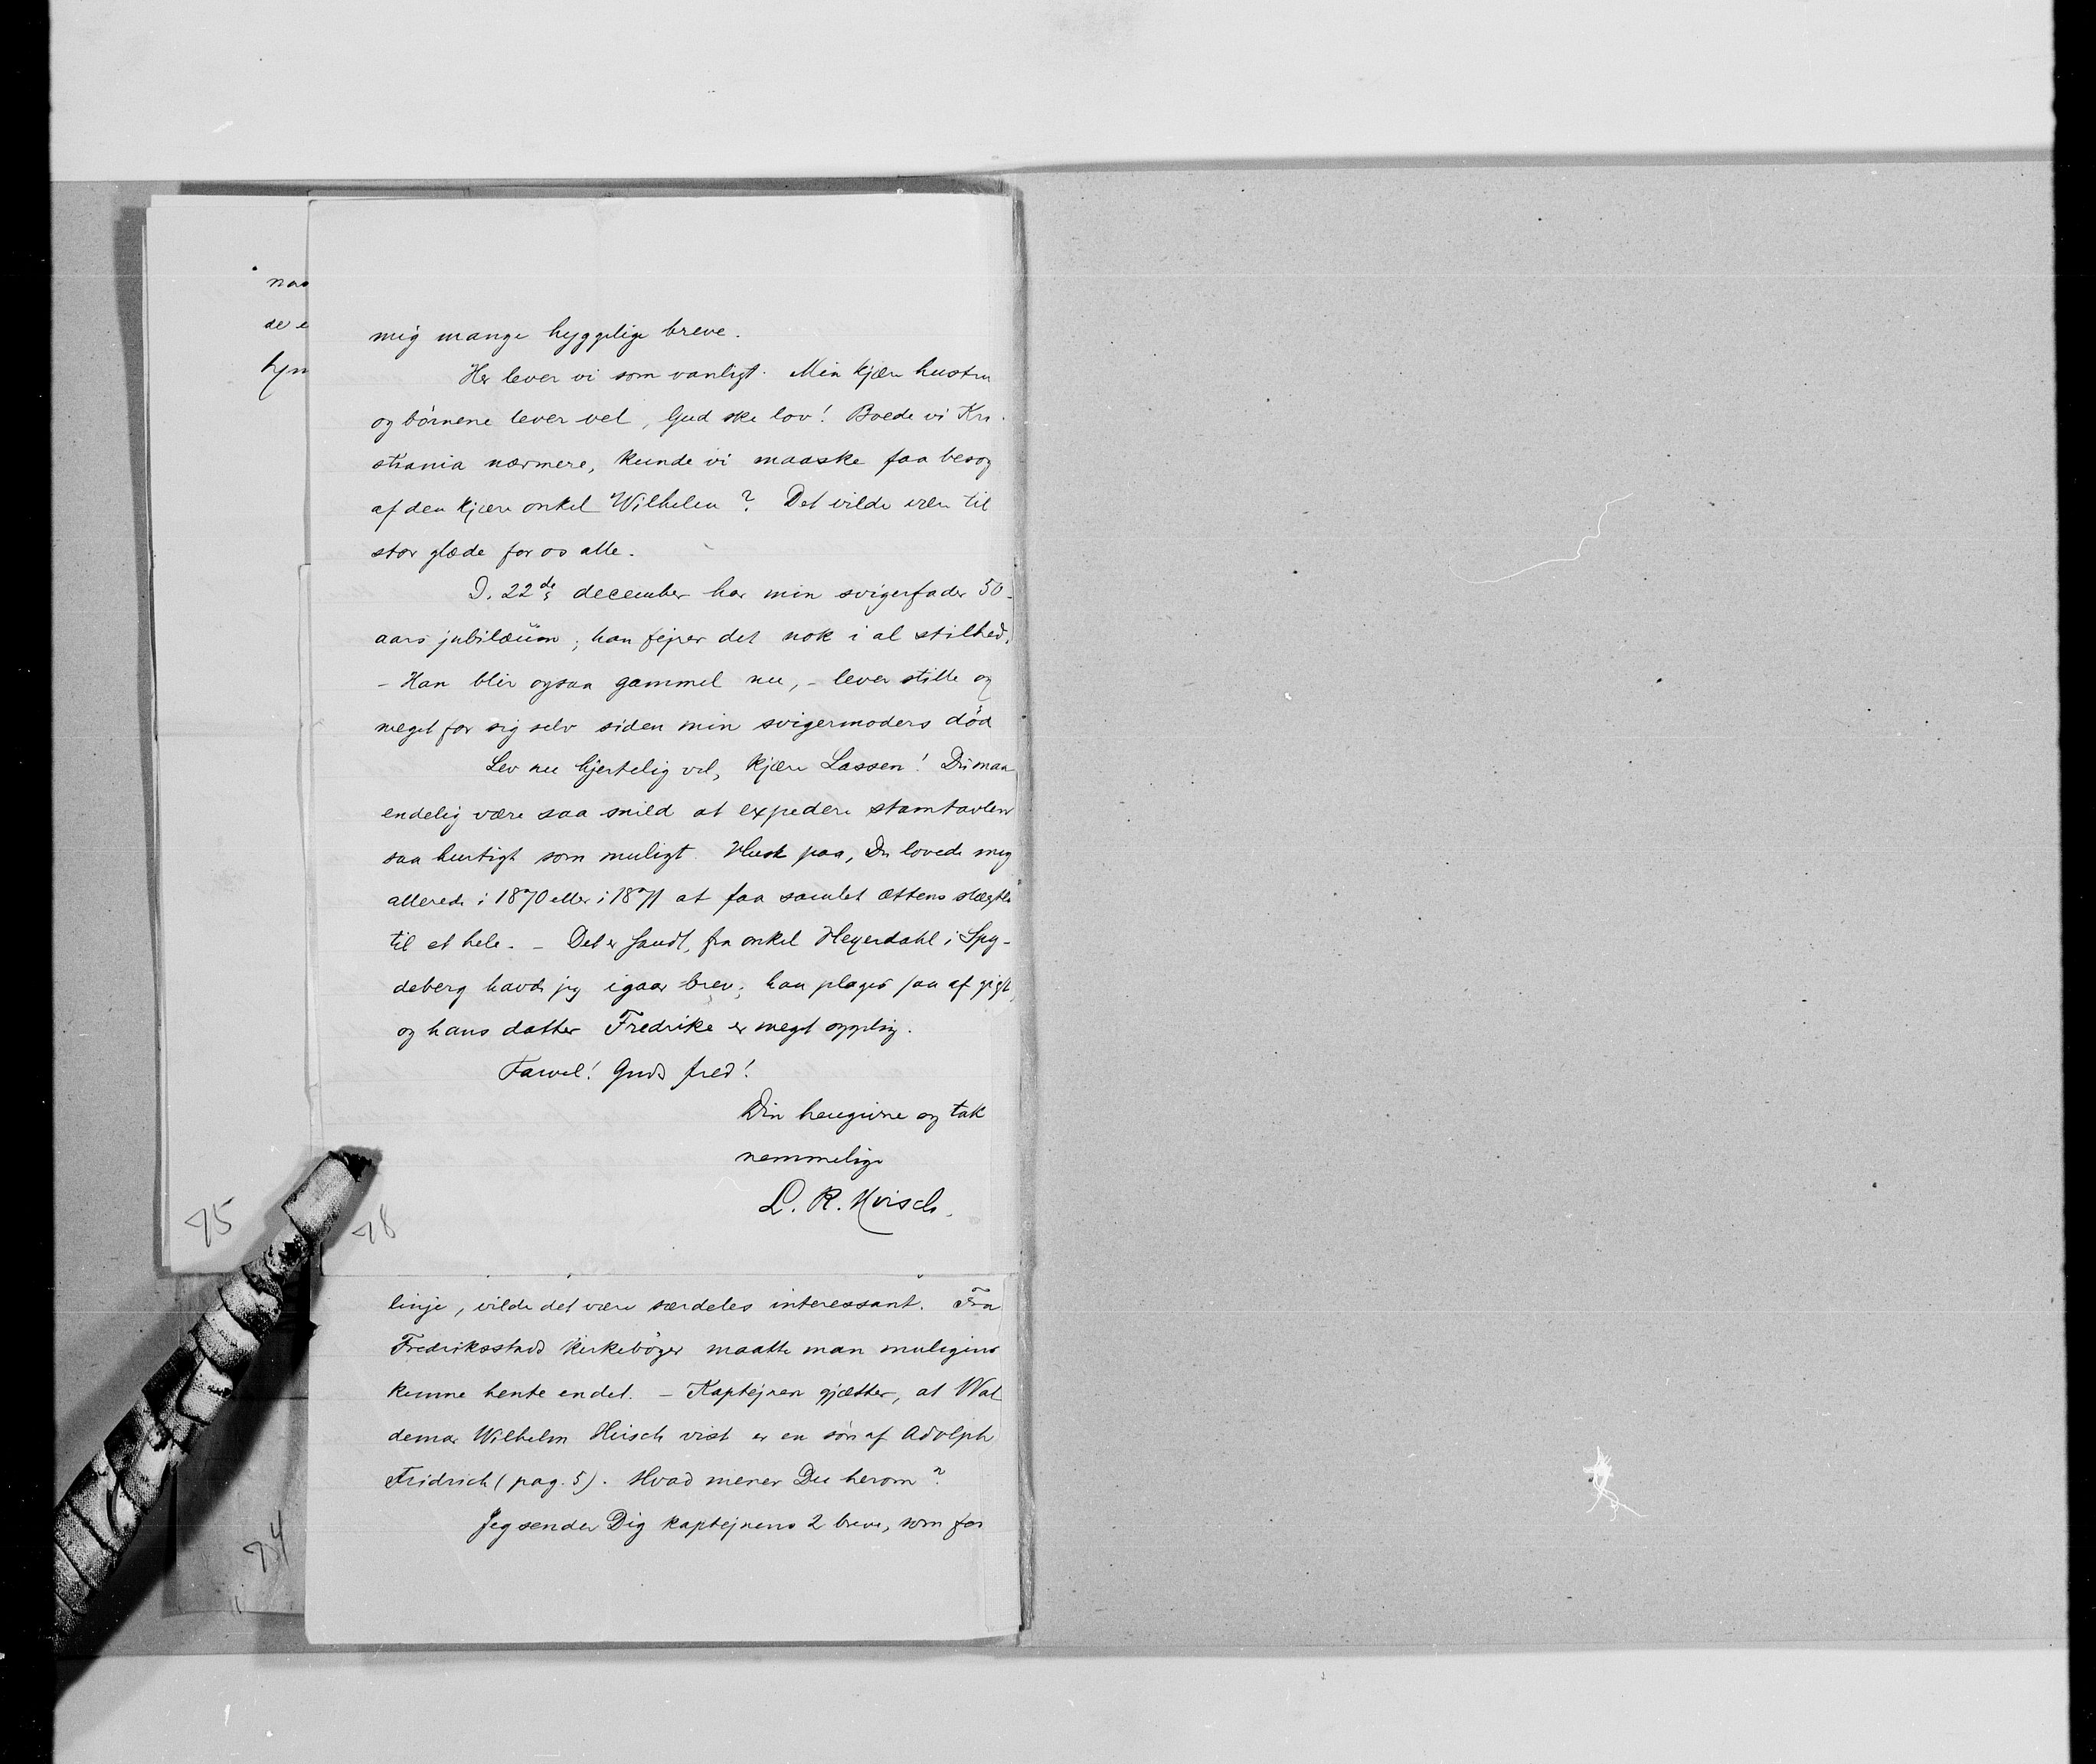 naa
de e
hjm
mig mange hyggelige breve.
Her lever vi som vanligt. Min kjære hustru
og börnene lever vel, Gud ske lov! Boede vi Kri-
stiania nærmere, kunde vi maaske faa besog
af den kjære onkel Wilhelm? Det vilde være til
stor glæde for os alle.
D. 22de december har min svigerfader 50-
aars jubilæum; han fejrer det nok i al stilhed.
- Han blir ogsaa gammel nu, - lever stille og
meget for sig selv siden min svigermoders död
Lev nu hjertelig vel, kjære Lassen! Du maa
endelig være saa snild at expedere stamtavlen
saa hurtigt som muligt. Husk paa, Du lovede mig
allerede i 1870 eller i 1871 at faa samlet ættens
til et hele. - Det er sandt, fra onkel Heyerdahl i Spy-
deberg havde jeg igaar brev; han plages saa af gigt,
og hans datter Fredrike er meget
Farvel! Guds fred!
Din hengivne og tak
nemmelige
L. R. Hvisch.
75
78
linje, vilde det være særdeles interessant. Fra
Fredriksstads kirkebøger maatte man muligens
kunne hente endel. - Kaptejnen gjætter, at Wal
demar Wilhelm Hvisch vist er en sön af Adolph
Fridrich (pag. 5). Hvad mener Du herom?
Jeg sender Dig kaptejnens 2 breve, som for
74